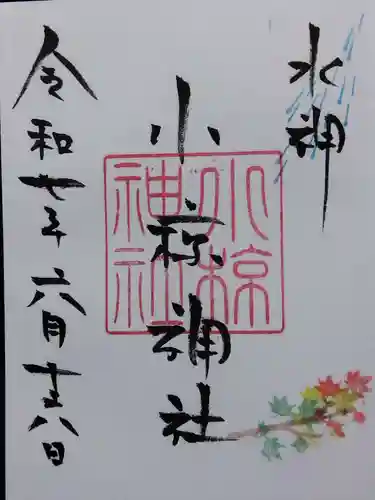 水神
小椋神社
小椋神社
令和七年六月十八日